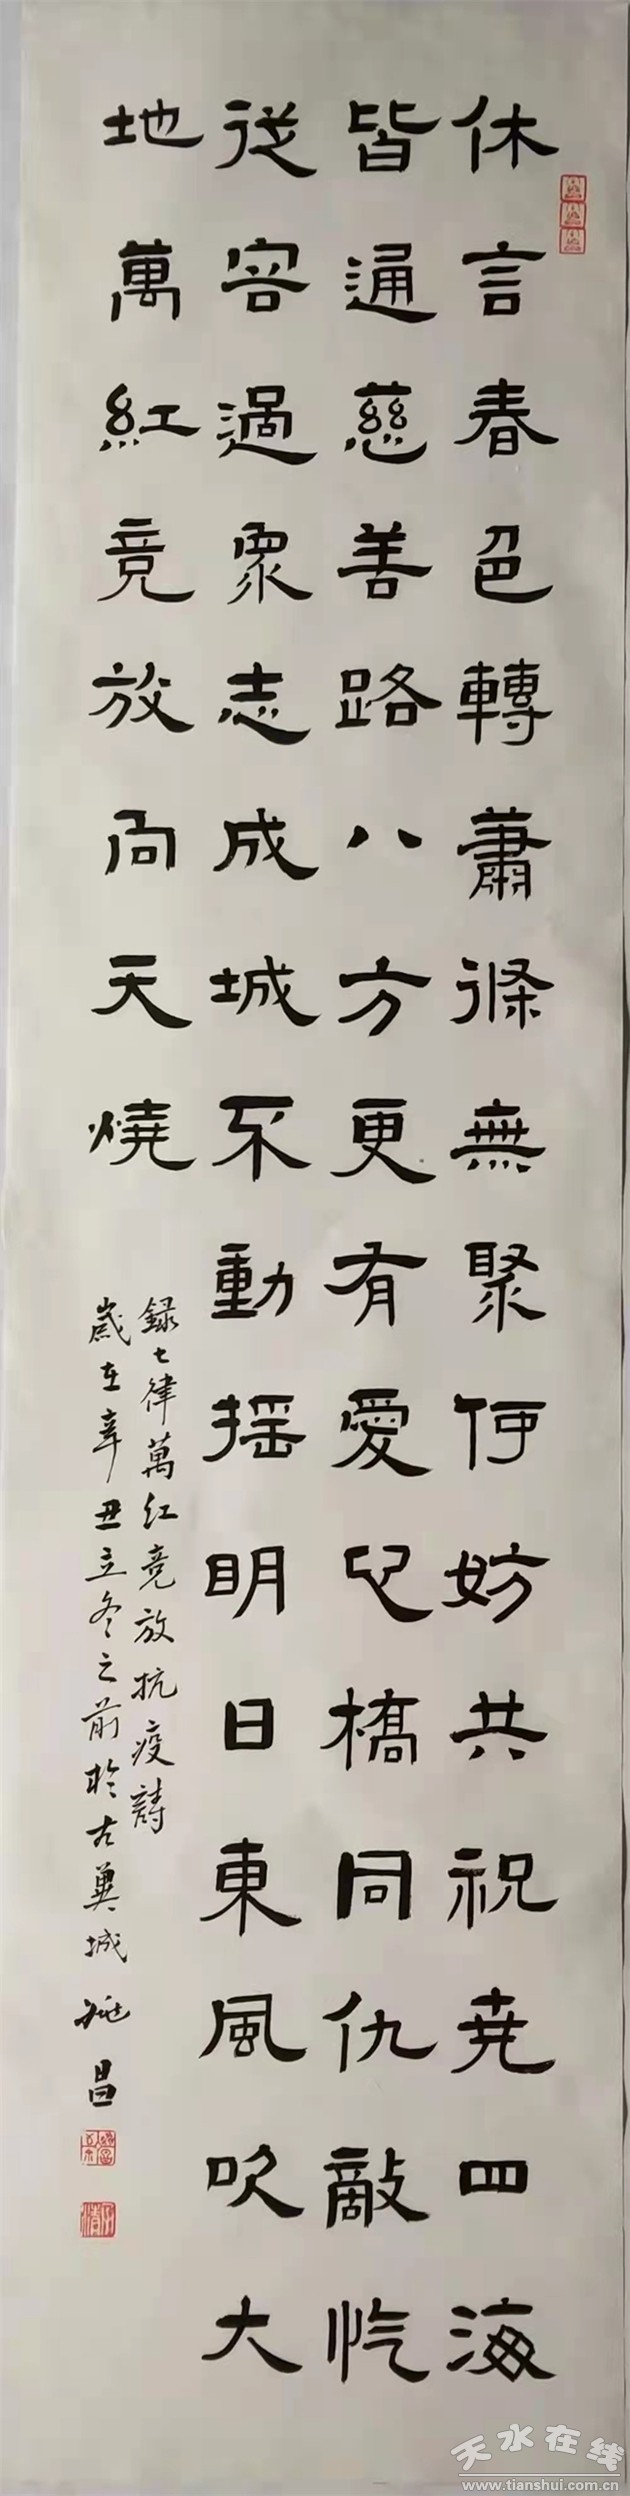 休言春色轉蕭條無聚何妨共祝尭四海
皆通慈善路八方更有愛心橋同仇敵忾
從容過眾志成城不動搖明日東風吹大
地萬紅竞放向天燒
録七律萬红竞放抗疫詩
歲在辛丑立冬之前於古冀城 姚昌
天水在线
www.tianshui.com.cn